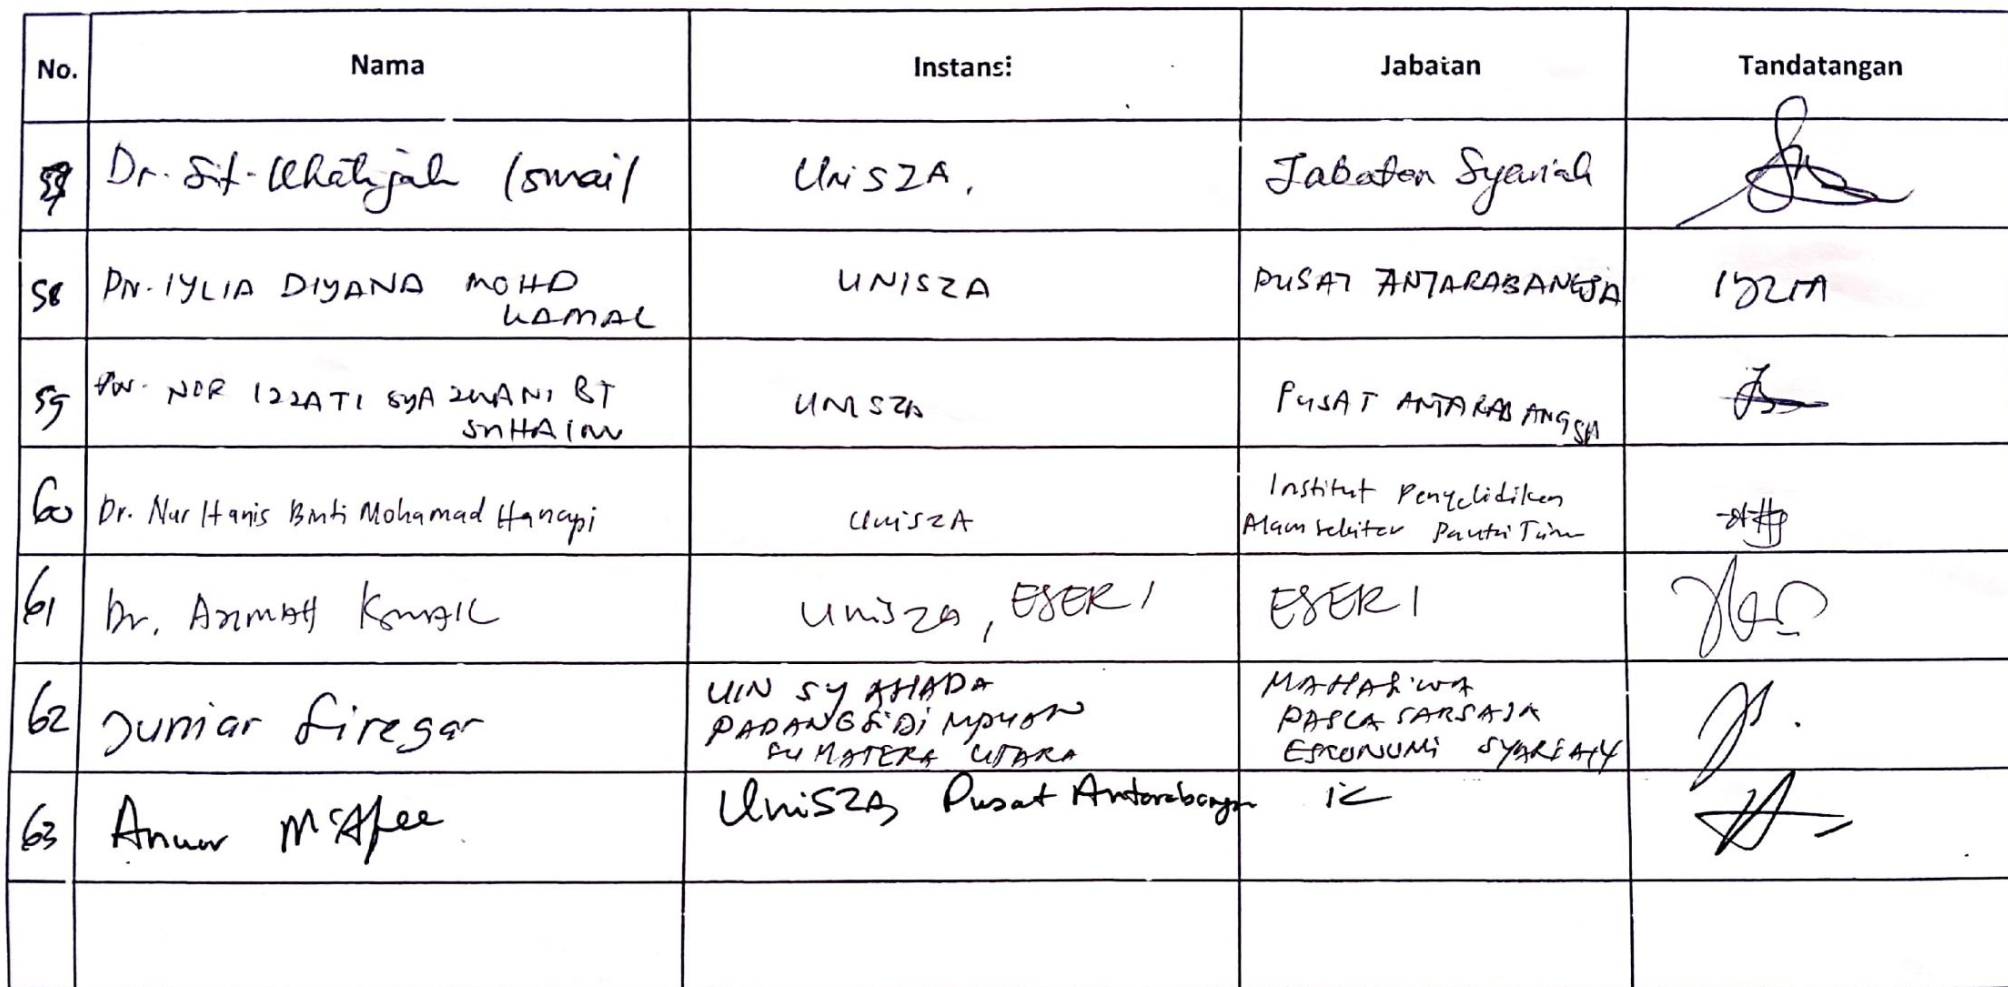 No. Nama Instansi Jabatan Tandatangan
57 Dr. Sit. Khatijah Ismail UniSZA. Jabatan Syariah
58 PN. IYLIA DIYANA MOHD UNISZA PUSAT ANTARABANGSA IYLIA
KAMAL
59 PN. NOR IZZATI SYAZWANI BT UNISZA PUSAT ANTARABANGSA
60 Dr. Nur Hanis Binti Mohamad Hanapi UniSZA Institut Penyelidikan
Alam Sekitar Pantai Timur
61 Dr. UniSZA, ESERI ESERI
62 Juniar Siregar UIN SYAHADA MAHASIWA
PADANGSIDIMPUAN PASCA SARJAJA
SUMATERA UTARA SYAREAH
63 Anuar McAfee UniSZA Pusat Antarabangsa